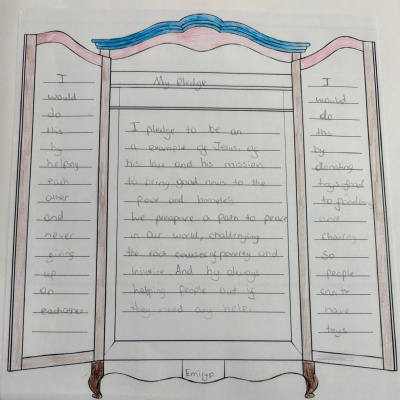 My Pledge
I
would
do
this
by
helping
each
other
and
never
giving
up
on
eachother
I pledge to be an
a example of Jesus, of
his love and his mission
to bring good news to the
poor and homeless
We prepare a path to peace
in our world, challenging
the root causes of poverty and
injustice And by always
helping people out if
they need any help.
I
would
do
this
by
donating
toys
to
and
charity
So
people
can
have
toys
Emily.p